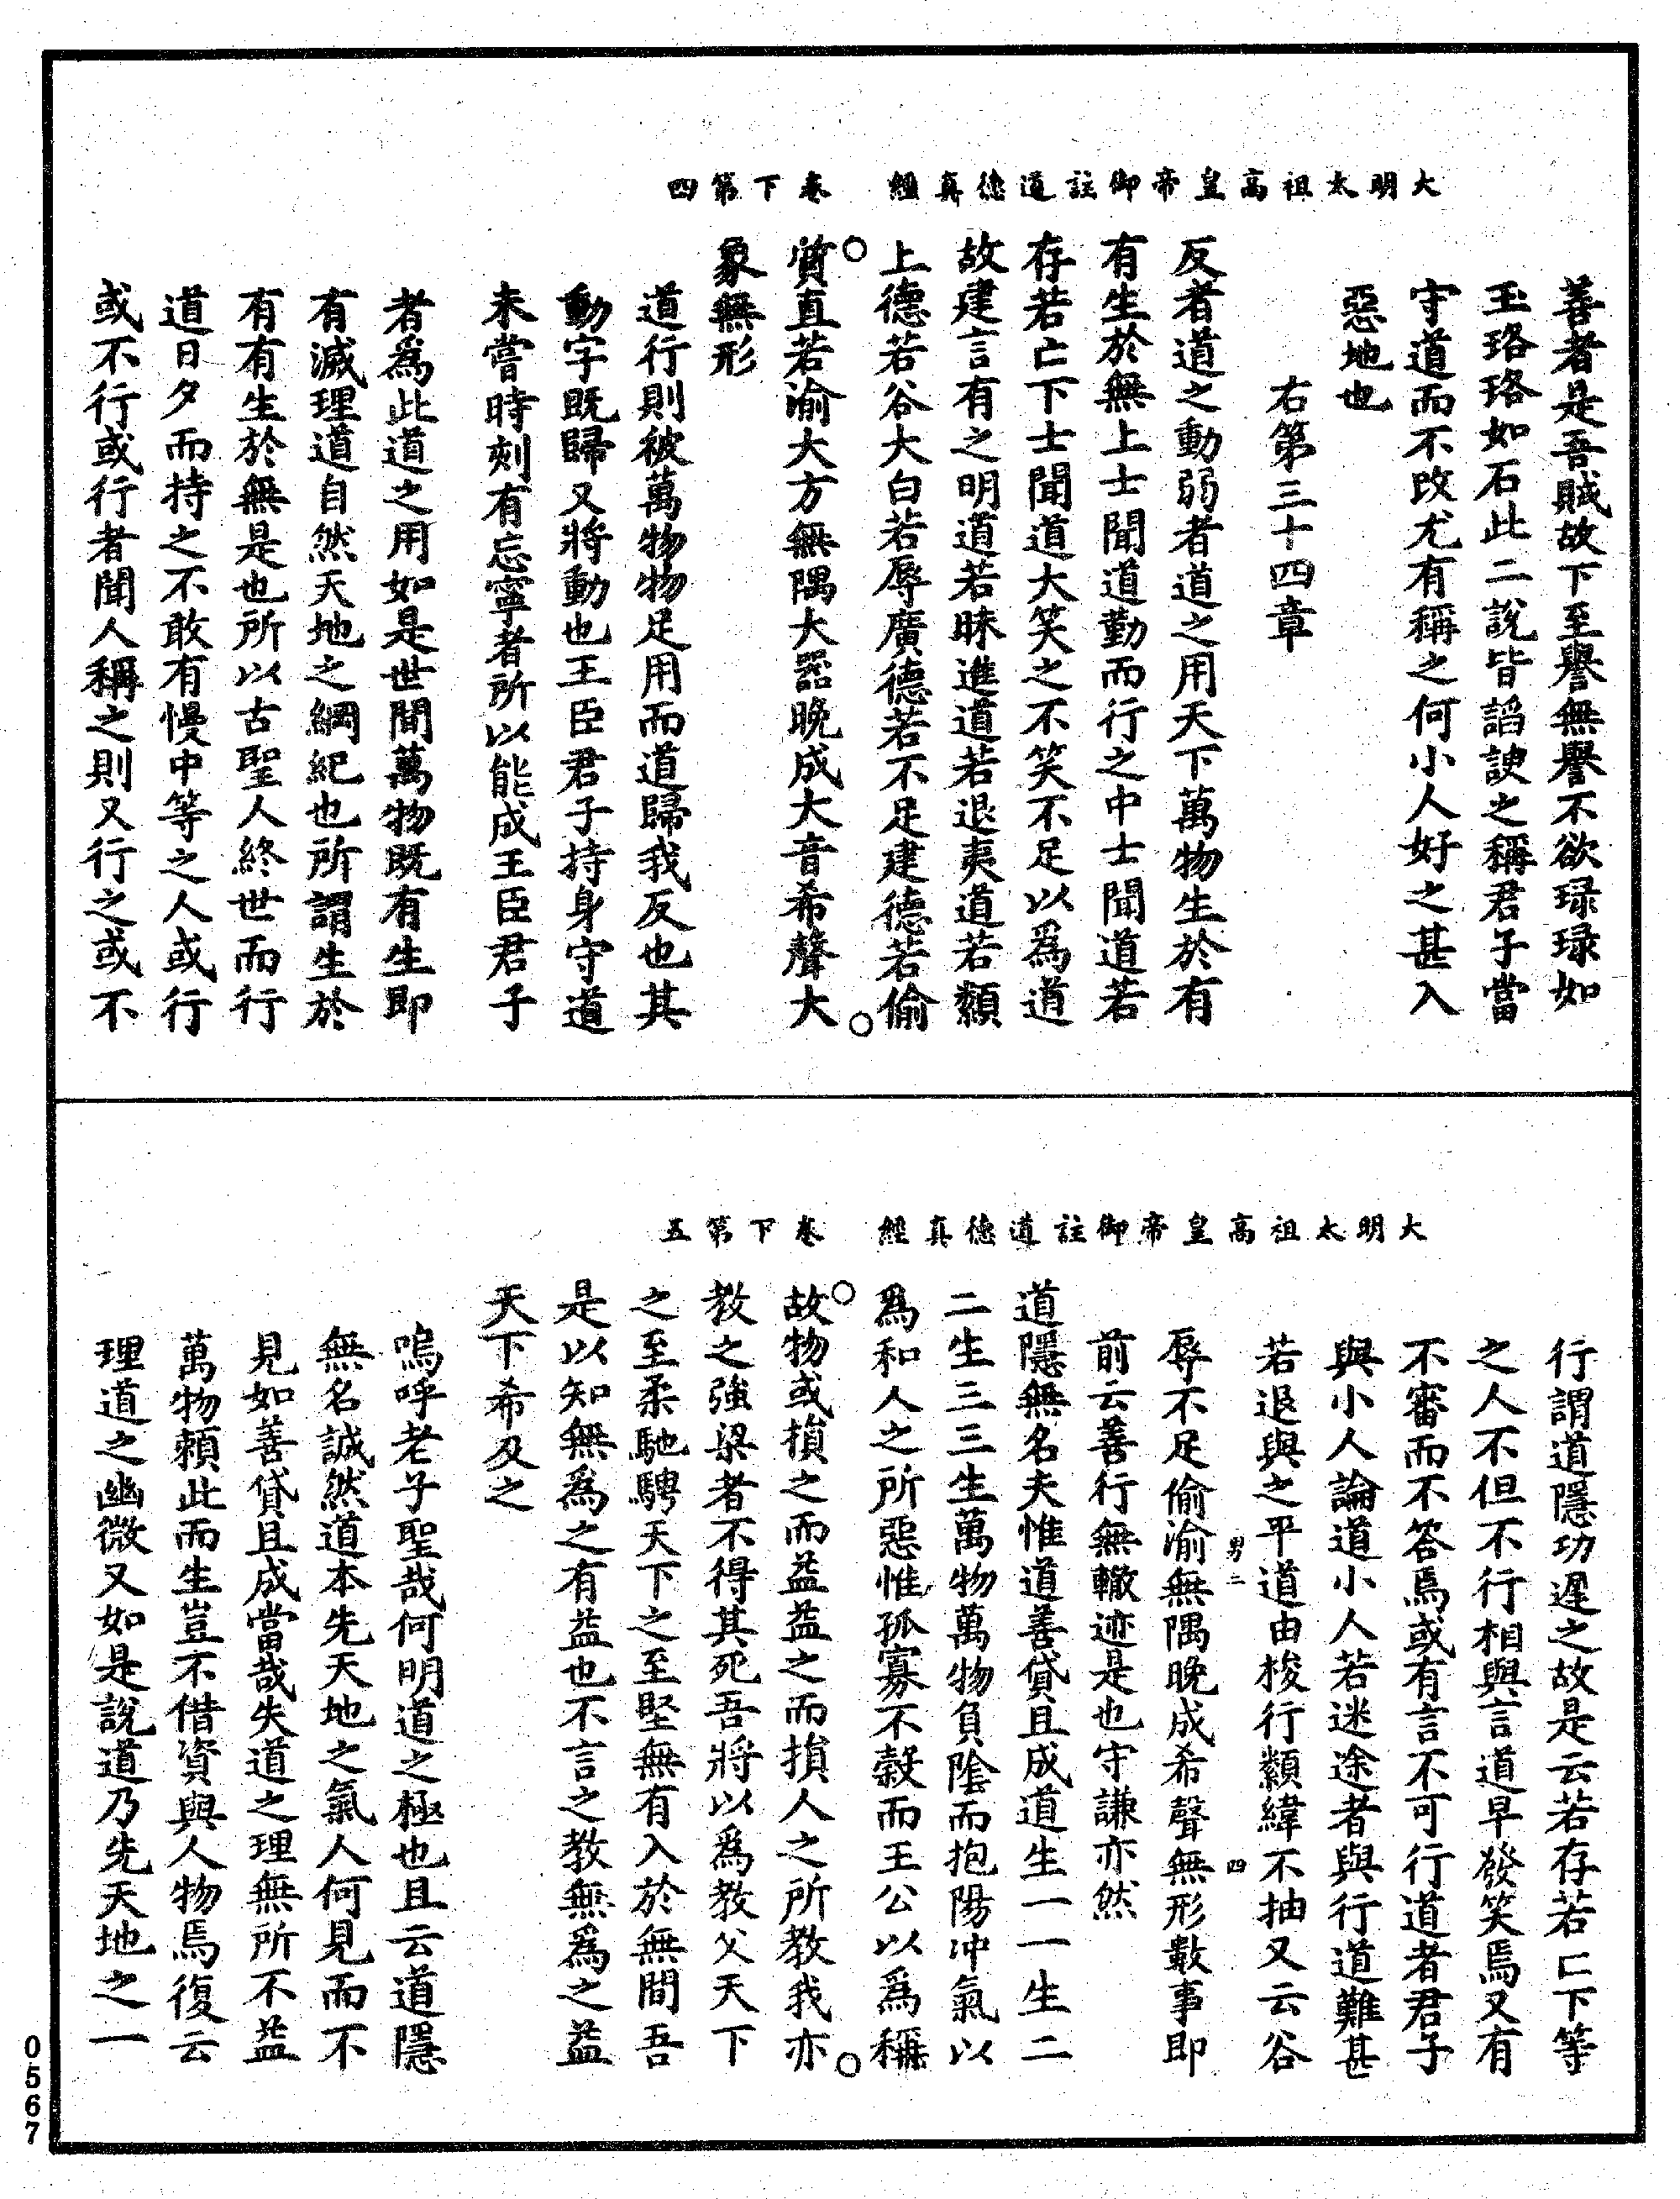 大明太祖高皇帝御註道德真經　卷下第四
善者是吾賊故下至譽無譽不欲琭琭如
玉珞珞如石此二說皆謟諛之稱君子當
守道而不改尤有稱之何小人好之甚入
惡地也
右第三十四章
反者道之動弱者道之用天下萬物生於有
有生於無上士聞道勤而行之中士聞道若
存若亡下士聞道大笑之不笑不足以爲道
故建言有之明道若昧進道若退夷道若纇
上德若谷大白若辱廣德若不足建德若偷
○質直若渝大方無隅大器晚成大音希聲大○
象無形
道行則被萬物物足用而道歸我反也其
動字既歸又將動也王臣君子持身守道
未嘗時刻有忘寧者所以能成王臣君子
者爲此道之用如是世間萬物既有生即
有滅理道自然天地之綱紀也所謂生於
有有生於無是也所以古聖人終世而行
道日夕而持之不敢有慢中等之人或行
或不行或行者聞人稱之則又行之或不
大明太祖高皇帝御註道德真經　卷下第五
行謂道隱功遲之故是云若存若亡下等
之人不但不行相與言道早發笑焉又有
不審而不答焉或有言不可行道者君子
與小人論道小人若迷途者與行道難甚
若退與之平道由梭行纇緯不抽又云谷
男二　四
辱不足偷渝無隅晚成希聲無形數事即
前云善行無轍迹是也守謙亦然
道隱無名夫惟道善貸且成道生一一生二
二生三三生萬物萬物負陰而抱陽冲氣以
爲和人之所惡惟孤寡不穀而王公以爲稱
○故物或損之而益益之而損人之所教我亦○
教之強梁者不得其死吾將以爲教父天下
之至柔馳騁天下之至堅無有入於無間吾
是以知無爲之有益也不言之教無爲之益
天下希及之
嗚呼老子聖哉何明道之極也且云道隱
無名誠然道本先天地之氣人何見而不
見如善貸且成當哉失道之理無所不益
萬物賴此而生豈不借資與人物焉復云
理道之幽微又如是說道乃先天地之一
0567